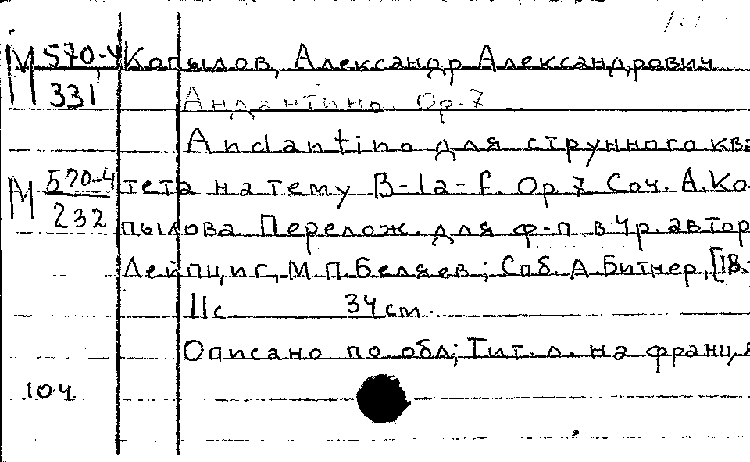 М 570-4 Копылов, Александр Александрович
331 Андантино. Ор.7
Andantino для струнного ква
М 570-4 тета на тему B-la-f. Op.7 Соч. А.Ко
232 пылова Перелож. для ф-п в 4р. автор
Лейпциг, М.П.Беляев; Спб. А.Битнер, [18.
11с 34 см.
Описано по обл; Тит. л. на франц. я
104